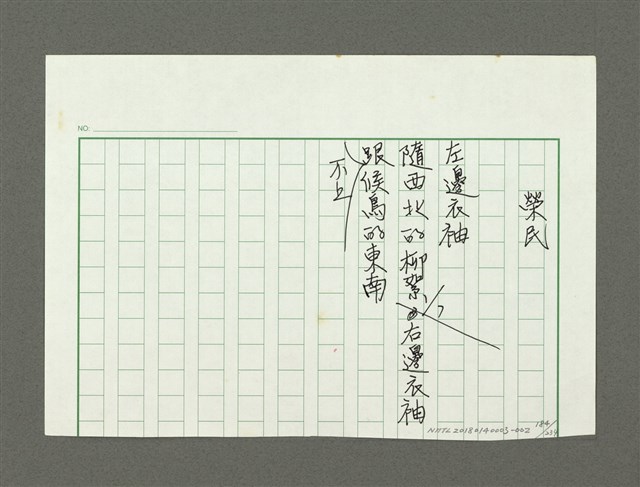 NO:
榮民
左邊衣袖
隨西北的柳絮右邊衣袖
跟候鳥的東南
不上
NMTL20180140003-002
184/234